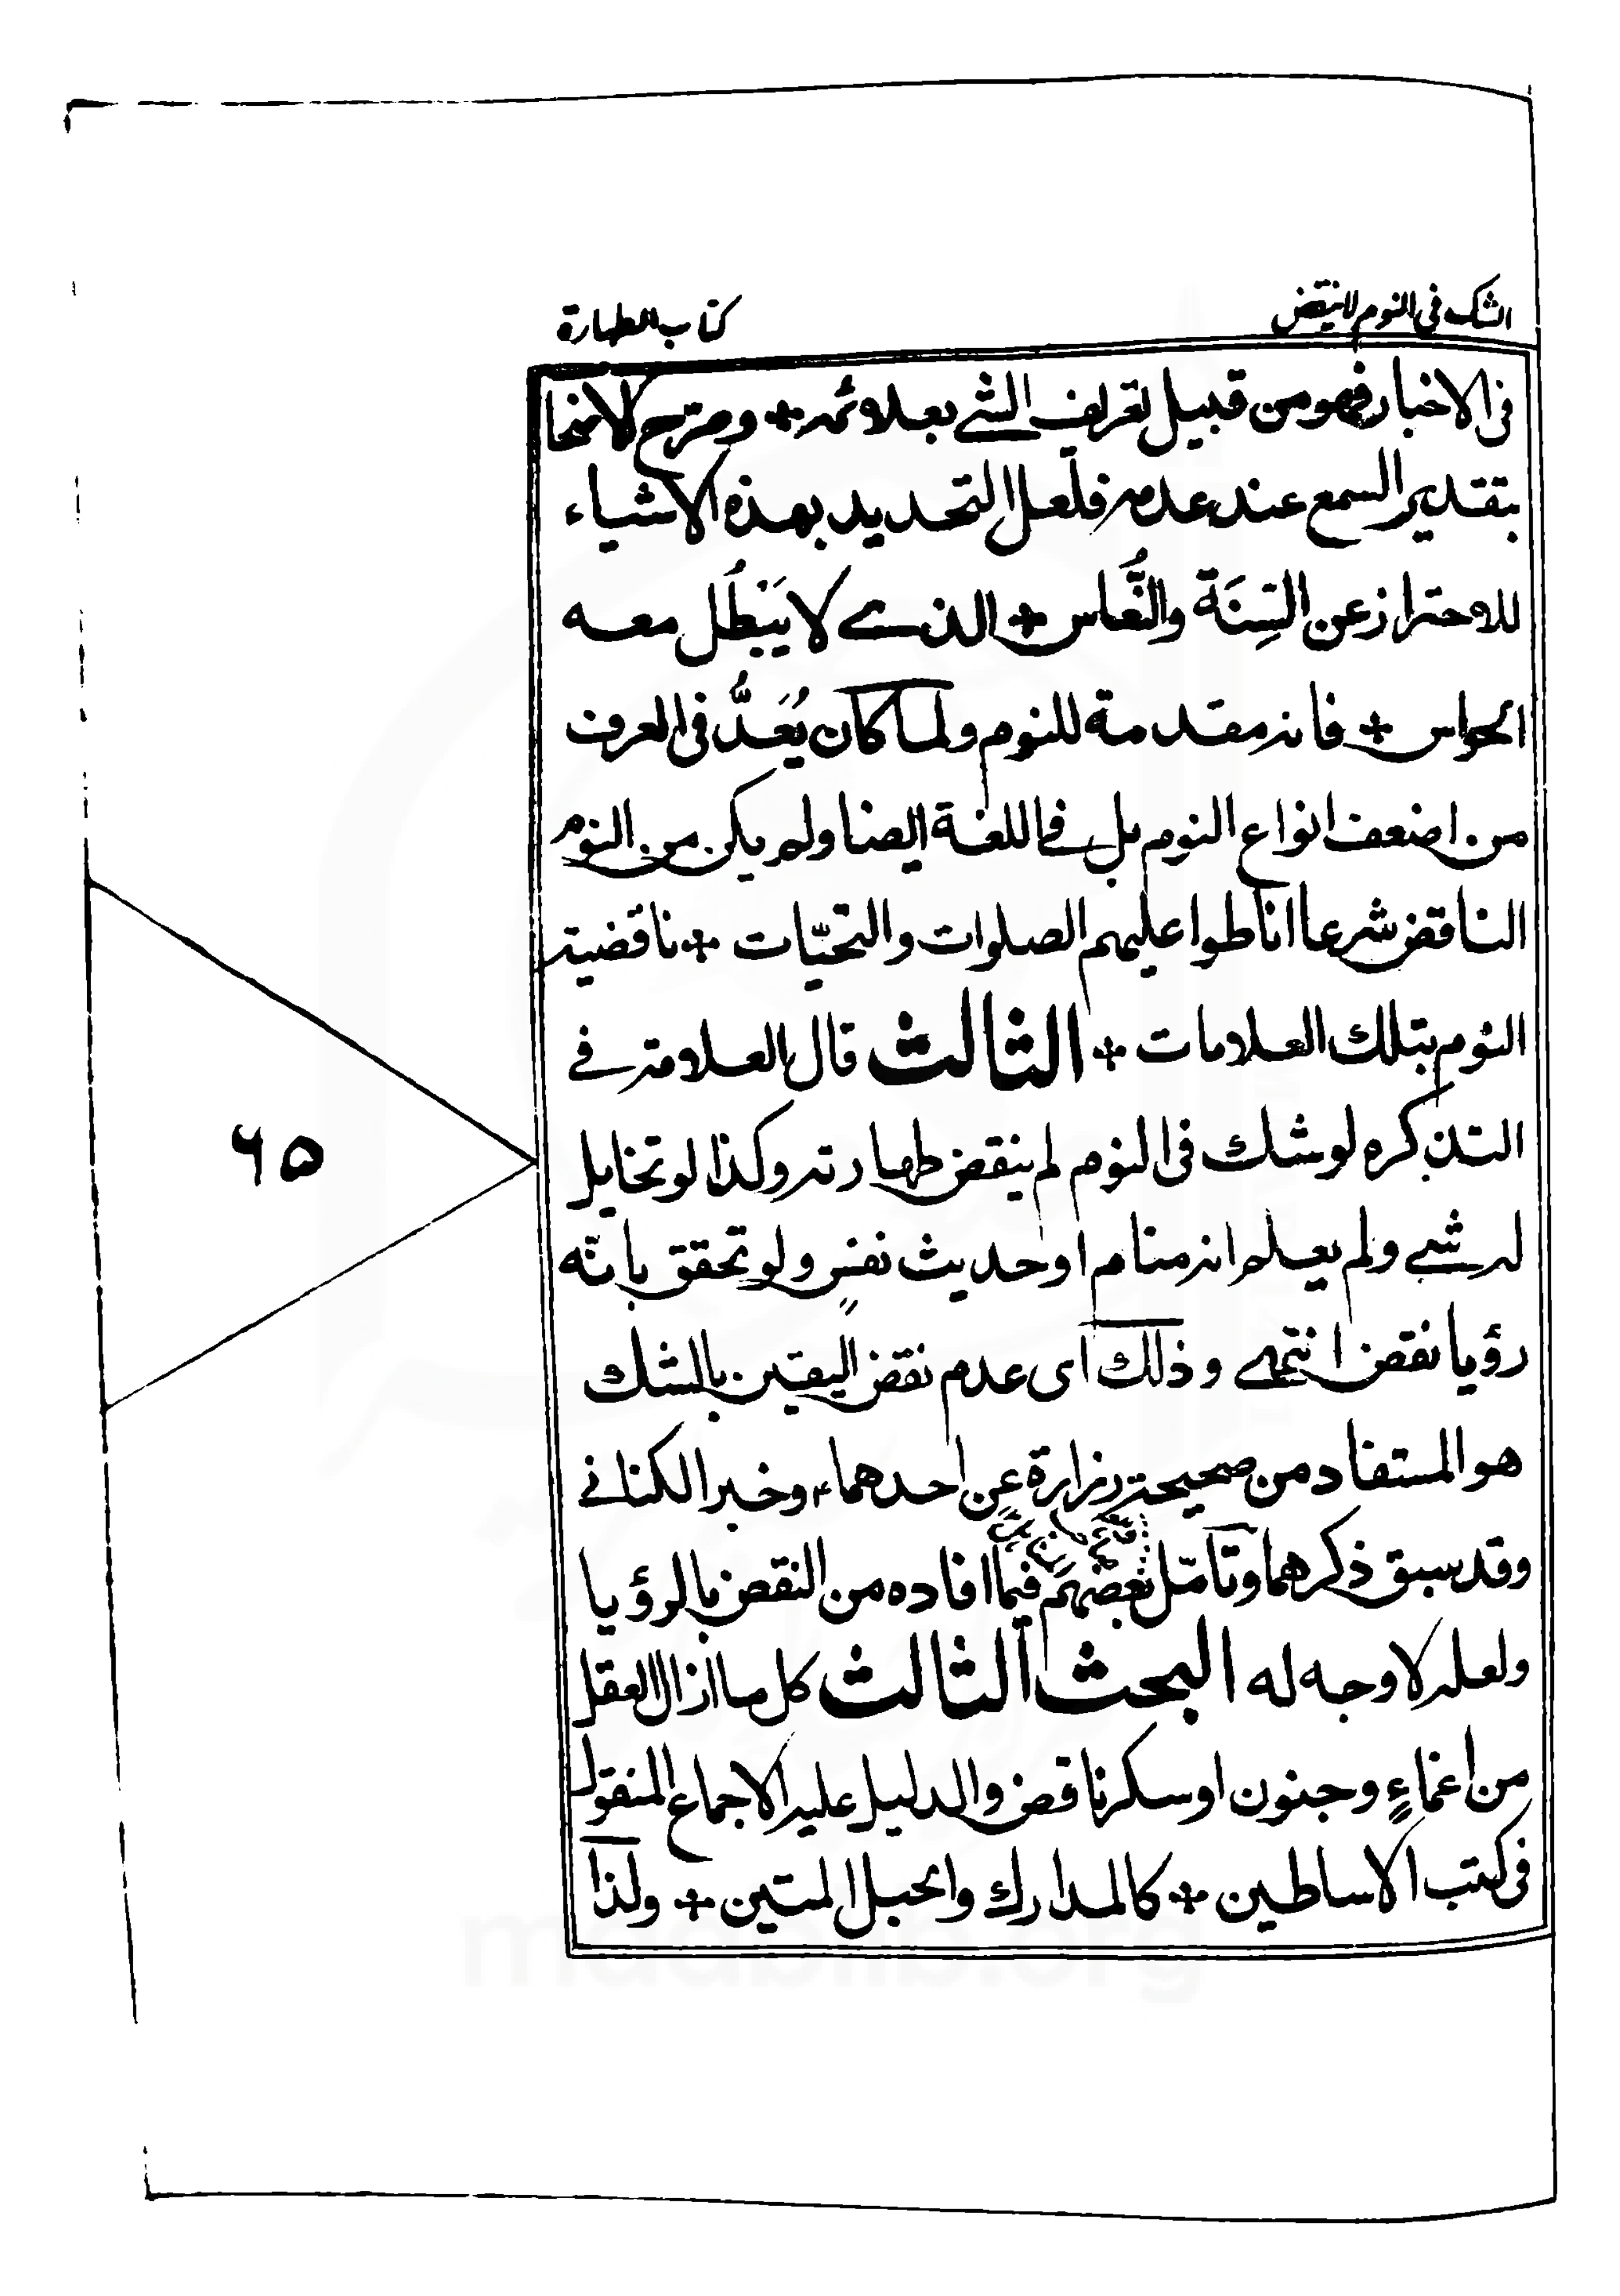 الشك في النوم لا ينقض
كتاب الطهارة
في الاخبار فهو من قبيل تعريف الشي بعلائمه + وصرح
بتقدير السمع عند عدمه فلعل التحديد بهذه الاشياء
للاحتراز عن السِنَة والنُّعاس + الذي لا يَبْطُل معه
الحواس + فانه مقدمة للنوم ولما كان يُعَدُّ في العرف
من اضعف انواع النوم بل في اللغة ايضا ولم يكن من النوم
الناقض شرعا اناطوا عليهم الصلوات والتحيّات + ناقضية
النوم بتلك العلامات + الثالث قال العلامة في
التذكره لو شك في النوم لم ينقض طهارته وكذا لو تخايل
له شي ولم يعلم انه منام او حديث نفسٍ ولو تحقق بأنّه
رؤيا نقض انتهى وذلك اى عدم نقض اليقين بالشك
هو المستفاد من صحيحة زرارة عن احدهما ؑ وخبر الكناني
وقد سبق ذكرهما وتأمّل بعضهم فيما افاده من النقض بالرؤيا
ولعله لا وجه له البحث الثالث كل ما ازال العقل
من اغماءٍ وجنون او سكر ناقض والدليل عليه الاجماع المنقول
في كتب الاساطين + كالمدارك والحبل المتين + ولذا
۶۵
madblib.org